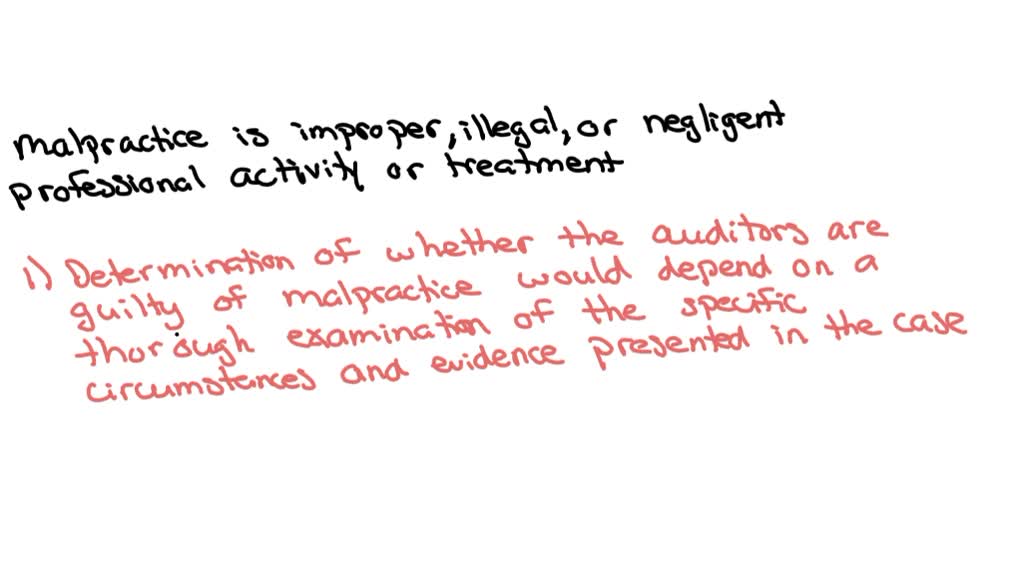 malpractice is improper, illegal, or negligent
professional activity or treatment
1) Determination of whether the auditors are
guilty of malpractice would depend on a
thorough examination of the specific
circumstances and evidence presented in the case